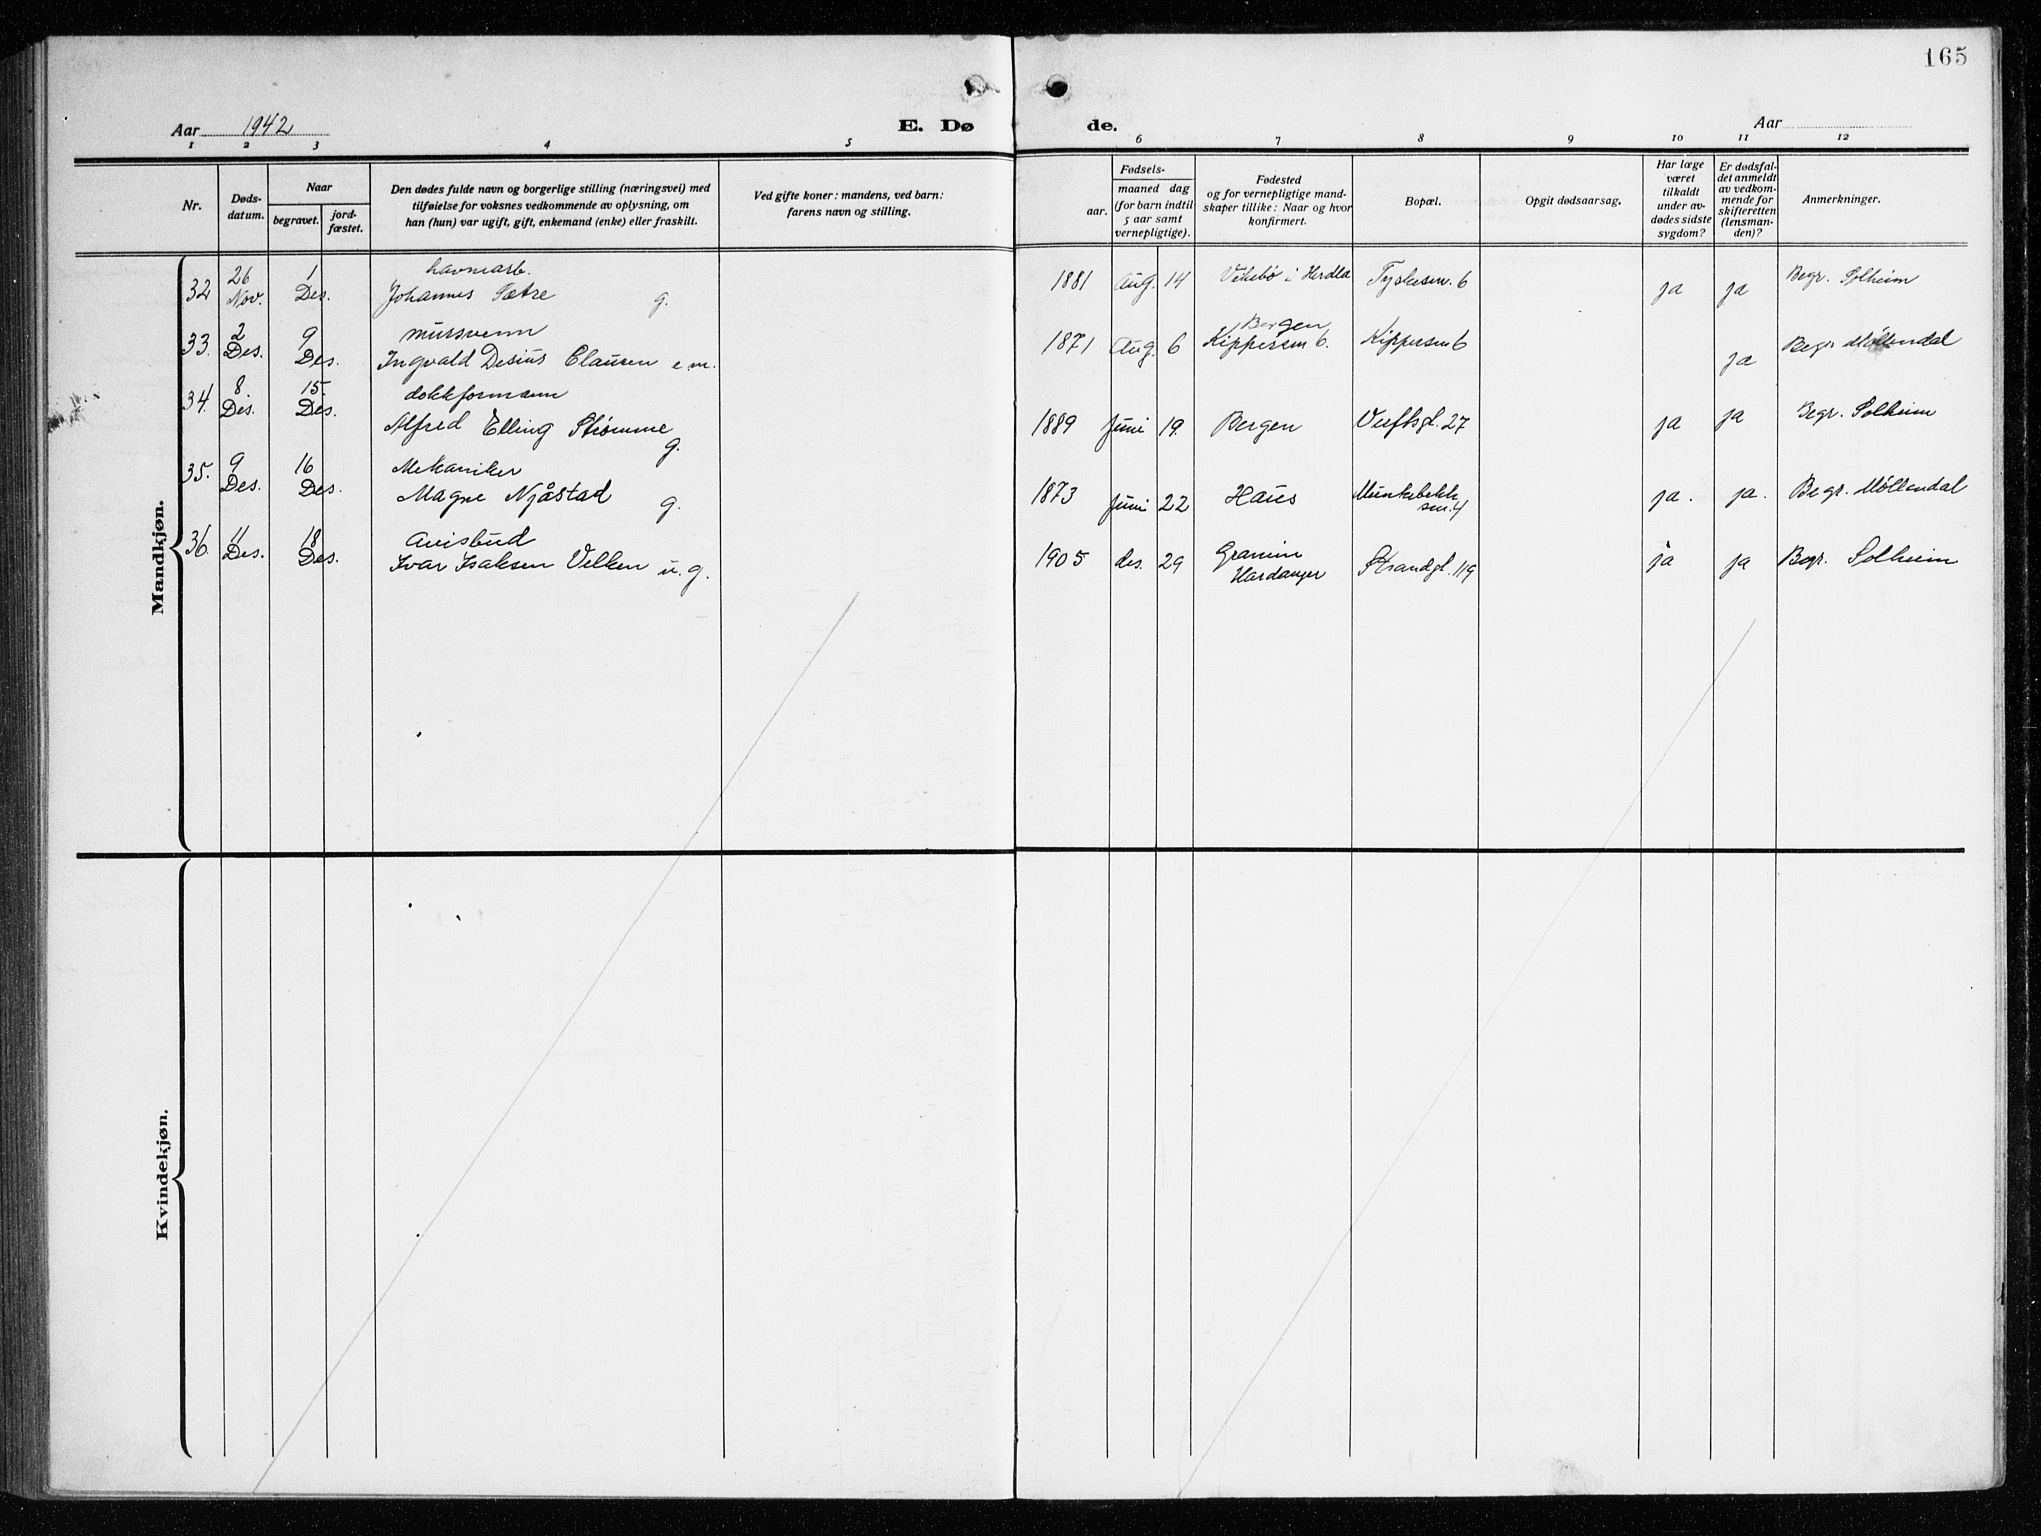 165
Aar 1942
E. Dø
de.
Aar
1 2 3 4 5 6 7 8 9 10 11 12
Nr.
Døds-
datum.
Naar
begravet.
jord-
fæstet.
Den dødes fulde navn og borgerlige stilling (næringsvei) med
tilføielse for voksnes vedkommende av oplysning, om
han (hun) var ugift, gift, enkemand (enke) eller fraskilt.
Ved gifte koner: mandens, ved barn:
farens navn og stilling.
Fødsels-
aar.
maaned dag
(for barn indtil
5 aar samt
vernepligtige).
Fødested
og for vernepligtige mand-
skaper tillike: Naar og hvor
konfirmert.
Bopæl.
Opgit dødsaarsag.
Har læge
været
tilkaldt
under av-
dødes sidste
sygdom?
Er dødsfal-
det anmeldt
av vedkom-
mende for
skifteretten
(lensman-
den)?
Anmerkninger.
Mandkjøn.
32 26 Nov. 1 Des. havnearb.
Johannes Sætre g. 1881 Aug. 14 i Herdla Tyskesm. 6 ja ja Begr. Solheim
33. 2 Des. 9 Des. mursvenn
Ingvald Desius Clausen e.m. 1871 Aug. 6 Bergen
Kippersm 6. Kippersm 6 ja Begr Møllendal
34. 8 Des. 15 Des. dokkformann
Alfred Elling Strømme g. 1889 Juni 19. Bergen Verftsgt. 27 ja ja Begr. Solheim
35. 9 Des. 16 Des. Mekaniker
Magne Njåstad g. 1873 Juni 22 Haus Munkebekk
sm. 4 ja. ja. Begr. Møllendal
36. 11 Des. 18 Des. Avisbud
Ivar Isaksen Velken u.g. 1905 des. 29 Granvin
Hardanger Strandgt. 119 ja ja Begr. Solheim
Kvindekjøn.